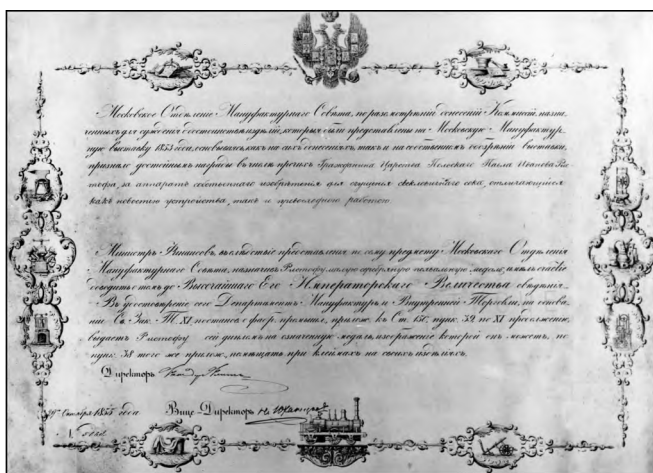 Московское Отдѣленіе Мануфактурнаго Совѣта, по разсмотрѣніи донесеній Коммисіи, назна-
ченныхъ для сужденія о достоинствѣ издѣлій, которыя были представлены на Московскую Мануфактур-
ную выставку 1853 года, основываясь какъ на сихъ донесеніяхъ, такъ и на собственномъ обозрѣніи выставки,
признало достойнымъ награды въ числѣ прочихъ Гражданина Царства Польскаго
за аппаратъ собственнаго изобрѣтенія для сгущенія свекловичнаго сока, отличающійся
какъ новостію устройства, такъ и превосходною работою.
Министръ Финансовъ, въ слѣдствіе представленія по сему предмету Московскаго Отдѣленія
Мануфактурнаго Совѣта, назначивъ малую серебряную медаль, имѣлъ счастіе
доводить о томъ до Высочайшаго Его Императорскаго Величества свѣдѣнія.
Въ достовѣреніе сего Департаментъ Мануфактуръ и Внутренней Торговли, на основа-
ніи Св. Зак. Т. XI постанов. о фабр. промышл., прилож. къ Ст. пунк. 32 по XI продолженію,
выдаетъ сей дипломъ на означенную медаль, изображеніе которой онъ можетъ, по
пунк. 38 того же прилож., помѣщать при клеймахъ на своихъ издѣліяхъ.
Директоръ
Октября 1853 года Вице-Директоръ
№